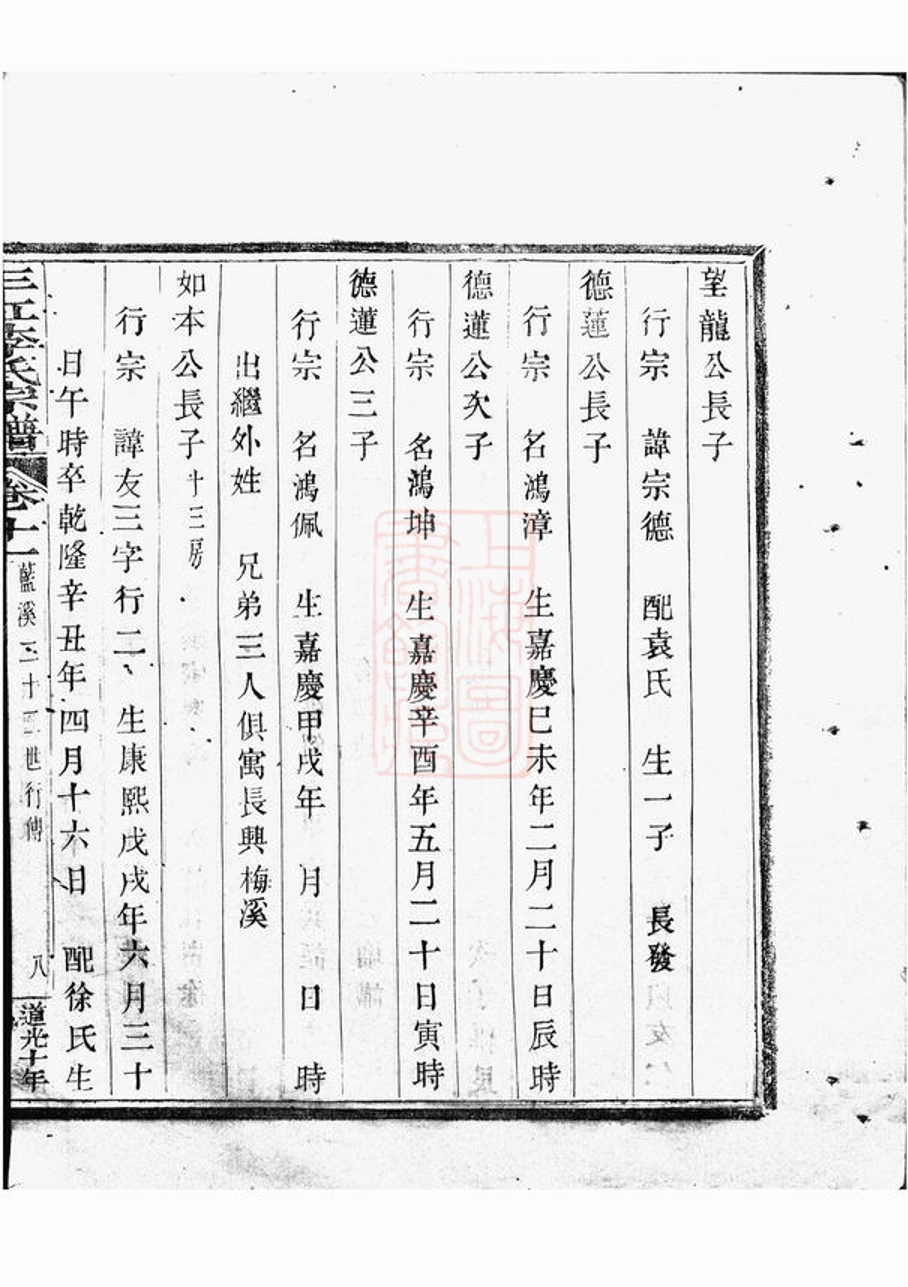 望龍公長子
行宗 諱宗德 配袁氏 生一子 長發
德蓮公長子
行宗 名鴻漳 生嘉慶巳未年二月二十日辰時
德蓮公次子
行宗 名鴻坤 生嘉慶辛酉年五月二十日寅時
德蓮公三子
行宗 名鴻佩 生嘉慶甲戌年 月 日 時
出繼外姓 兄弟三人俱寓長興梅溪
如本公長子十三房
行宗 諱友三字行二 生康熙戊戌年六月三十
日午時卒乾隆辛丑年四月十六日 配徐氏生
三江李氏宗譜 卷十一 藍溪三十三世行傳 八 道光十年
上海圖書館藏